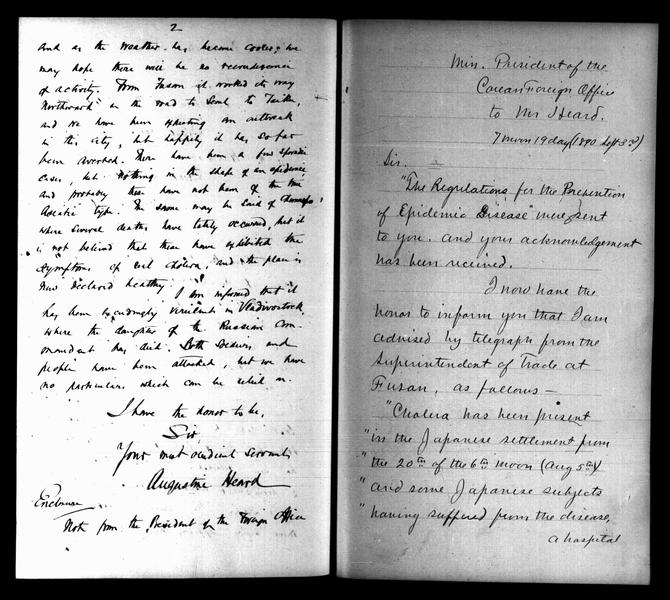 2
and as the weather has become cooler, we
may hope there will be no recrudescence
of activity. From Fusan it worked its way
Northward on the road to Seoul to Taiku,
and we have been expecting an outbreak
in this city, but happily it has so far
been averted. There have been a few sporadic
cases, but nothing in the shape of an epidemic
and probably these have not been of the true
Asiatic type. The same may be said of Chemulpo
where several deaths have lately occurred, but it
is not believed that these have exhibited the
symptoms of real cholera, and the place is
now declared healthy. I am informed that it
has been exceedingly virulent in Vladivostock,
where the daughter of the Russian Com-
mandant has died. Both soldiers and
people have been attacked, but we have
no particulars which can be relied on.
I have the honor to be,
Sir
Your most obedient servant
Augustine Heard
Enclosure
Note from the President of the Foreign Office
Min, President of the
Corean Foreign Office
to Mr Heard.
7 moon 19 day (1890 Sept 3rd)
Sir.
"The Regulations for the Prevention
of Epidemic Disease were sent
to you. and your acknowledgement
has been received.
I now have the
honor to inform you that I am
advised by telegraph from the
Superintendent of Trade at
Fusan, as follows —
"Cholera has been present
"in the Japanese settlement from
"the 20th of the 6th moon (Aug 5th)
"and some Japanese subjects
"having suffered from the disease,
a hospital